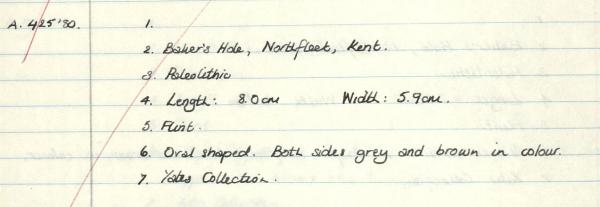 A. 425'80. 1.
2. Baker's Hole, Northfleet, Kent.
3. Paleolithic
4. Length: 8.0cm Width: 5.9cm.
5. Flint.
6. Oval shaped. Both sides grey and brown in colour.
7. Yates Collection.